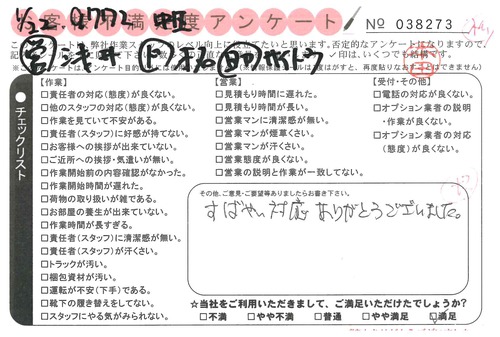 お客様不満足度アンケート
No 038273
このアンケートは、弊社作業スタッフのレベル向上に役立てたいと思います。否定的なアンケートになりますので、
✓印は、いくつでも結構です。
【作業】
□責任者の対応(態度)が良くない。
□他のスタッフの対応(態度)が良くない。
□作業を見ていて不安がある。
□責任者(スタッフ)に好感が持てない。
□お客様への挨拶が出来ていない。
□ご近所への挨拶・気遣いが無い。
□作業開始前の内容確認がなかった。
□作業開始時間が遅れた。
□荷物の取り扱いが雑である。
□お部屋の養生が出来ていない。
□作業時間が長すぎる。
□責任者(スタッフ)に清潔感が無い。
□責任者(スタッフ)が汗くさい。
□トラックが汚い。
□梱包資材が汚い。
□運転が不安(下手)である。
□靴下の履き替えをしてない。
□スタッフにやる気がみられない。
【営業】
□見積もり時間に遅れた。
□見積もり時間が長い。
□営業マンに清潔感が無い。
□営業マンが煙草くさい。
□営業マンが汗くさい。
□営業態度が良くない。
□営業の説明と作業が一致してない。
【受付・その他】
□電話の対応が良くない。
□オプション業者の説明
・作業が良くない。
□オプション業者の対応
(態度)が良くない。
●チェックリスト
その他、ご意見・ご要望等ありましたらお書き下さい。
すばやい対応ありがとうございました。
☆当社をご利用いただきまして、ご満足いただけたでしょうか?
□不満 □やや不満 □普通 □やや満足 ☑満足